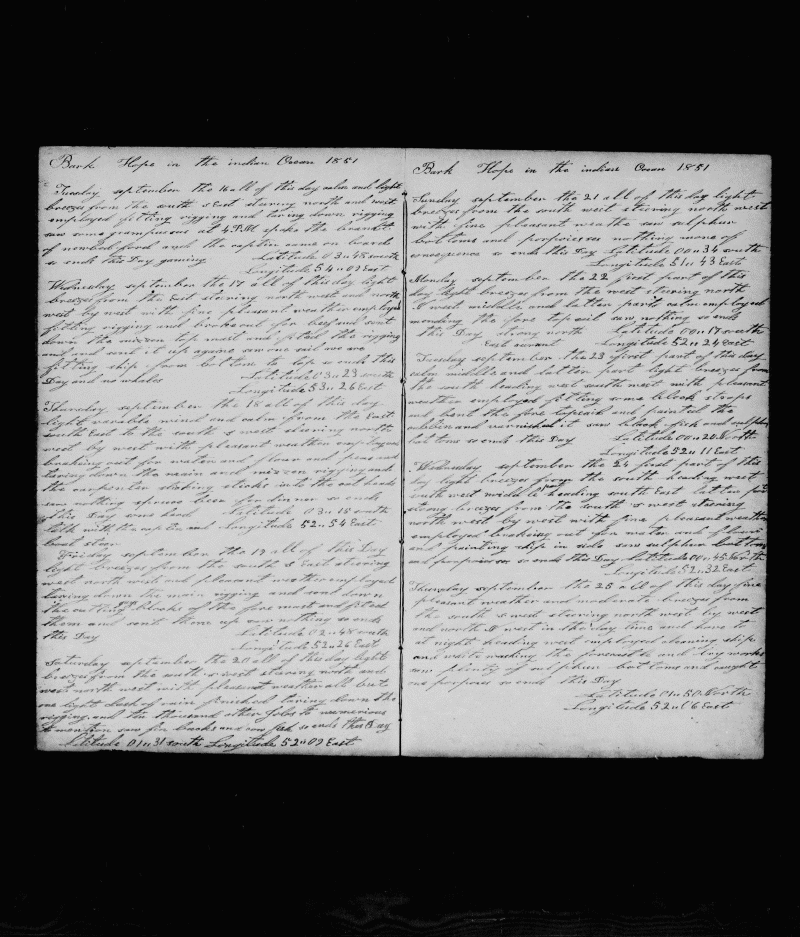 Bark Hope in the indian Ocean 1851
Tuesday september the 16 all of this day calm and light
breezes from the south & East staring north and west
employed fitting rigging and taring down rigging
saw some grampuses at 4 P.M spoke the
of and the captin came on board
so ends this Day gaming Latitude 03 n 48 south
Longitude 54 n 09 East
Wednesday september the 17 all of this day light
breezes from the East stearing north west and north
west by west with fine pleasant weather employed
fitting rigging and brokeout for beef and sent
down the mizzen top mast and fited the rigging
and and sent it up again saw one sail we are
fitting ship from bottom to top so ends this
Day and no whales Latitude 03 n 23 south
Longitude 53 n 26 East
Thursday september the 18 all of this day
light varable wind and calm from the East
south East to the south & west stearing north
west by west with pleasant weather employed
breaking out for water and flour and peas and
taring down the main and mizzen rigging and
the carpenter sticks into the cat heads
saw nothing beer for dinner so ends
this Day Latitude 03 n 15 south
talk with the captin and Longitude 52 n 54 East
boat steer
Friday september the 19 all of this Day
light breezes from the south & East stearing
west north west and pleasant weather employed
taring down the main rigging and sent down
the blocks of the fore mast and fited
them and sent them up saw nothing so ends
this Day Latitude 02 n 48 south
Longitude 52 n 26 East
Saturday september the 20 all of this day light
breezes from the south & west staring north and
west north west with pleasent weather all but
one light dash of rain finished taring down the
rigging and ten thousand other Jobs to numerious
to mention saw fin backs and so ends this Day
Latitude 01 n 31 south Longitude 52 n 09 East
Bark Hope in the indian Ocean 1851
Sunday september the 21 all of this day light
breezes from the south west steering north west
with fine pleasant weathe saw sulphur
bottoms and porpoises nothing more of
consequence so ends this Day Latitude 00 n 34 south
Longitude 51 n 43 East
Monday september the 22 first part of this
day light breezes from the west stering north
& west middle and latter part calm employed
mending the fore top sail saw nothing so ends
this Day strong north Latitude 00 n 17 south
East current Longitude 52 n 24 East
Tuesday september the 23 first part of this day
calm middle and latter part light breezes from
the south heading west south west with pleasant
weather employed fitting some block straps
and bent the fore topsail and painted the
and varnished it saw black fish and sulphur
bottoms so ends this Day Latitude 00 n 20 North
Longitude 52 n 11 East
Wednesday september the 24 first part of this
day light breezes from the south heading west
south west middle part heading south East latter part
strong breezes from the south & west stearing
north west by west with fine pleasant weather
employed breaking out for water and flour
and painting ship in side saw sulphur bottoms
and porpoises so ends this Day Latitude 00 n 45 North
Longitude 52 n 32 East
Thursday september the 25 all of this day fine
pleasant weather and moderate breezes from
the south & west stearing north west by west
and north & west in the day time and hove to
at night heading west employed cleaning ship
and waist washing the forecastle and try works
saw plenty of sulphur bottoms and caught
no porpoises so ends this Day
Latitude 01 n 50 North
Longitude 52 n 06 East